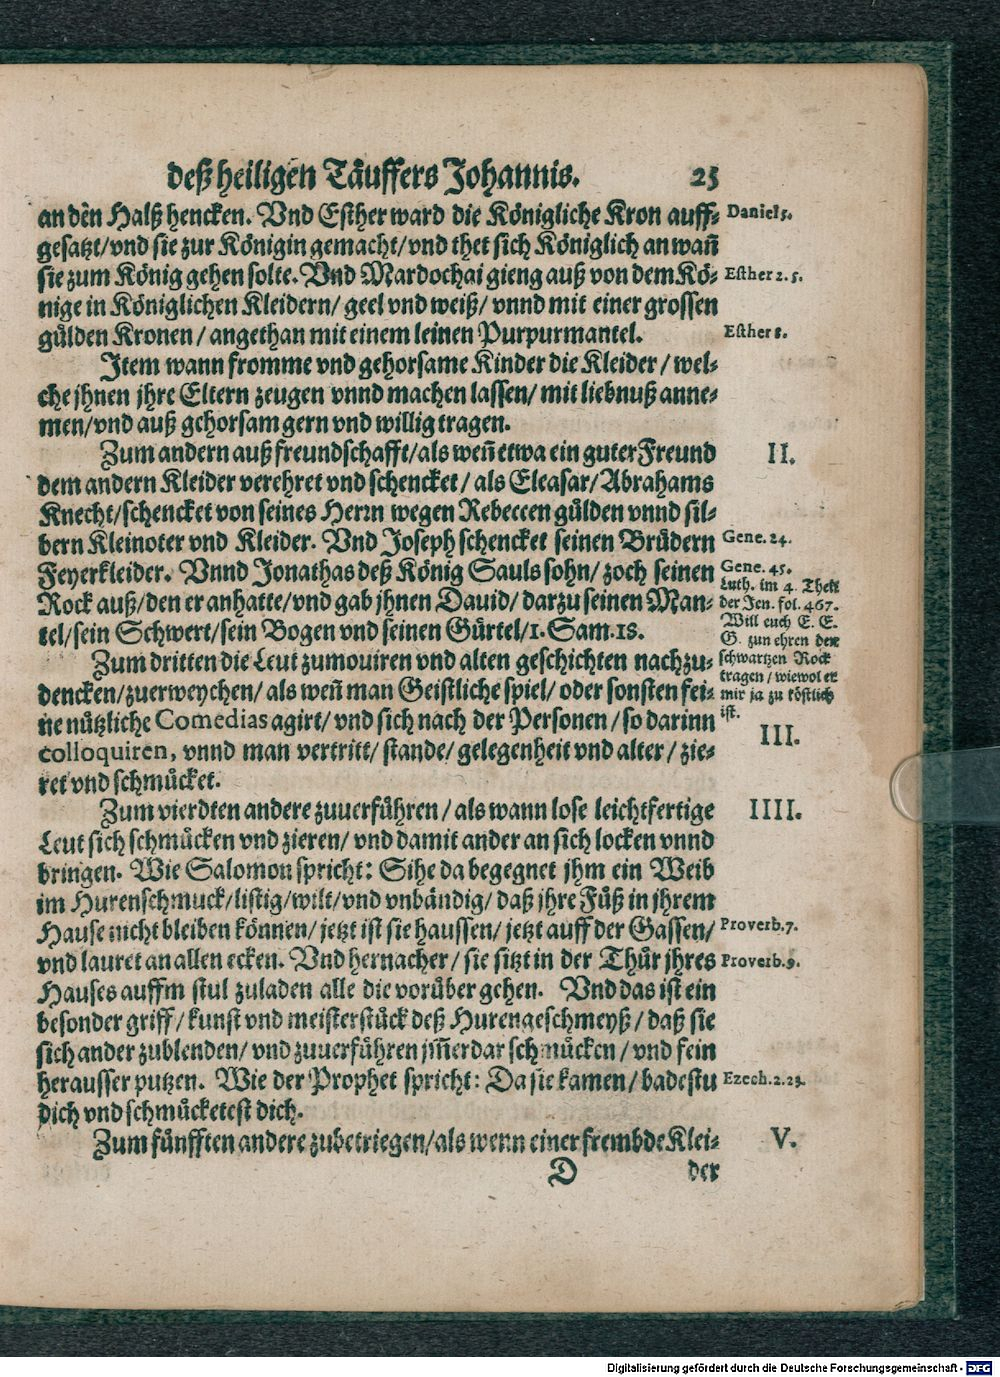 deß heiligen Täuffers Johannis. 25
an den Halß hencken. Vnd Esther ward die Königliche Kron auff-
gesatzt/vnd sie zur Königin gemacht/vnd thet sich Königlich an wañ
sie zum König gehen solte. Vnd Mardochai gieng auß von dem Kö-
nige in Königlichen Kleidern/ geel vnd weiß/ vnnd mit einer grossen
gülden Kronen/ angethan mit einem leinen Purpurmantel.
Item wann fromme vnd gehorsame Kinder die Kleider/ wel-
che jhnen jhre Eltern zeugen vnnd machen lassen/ mit liebnuß anne-
men/vnd auß gehorsam gern vnd willig tragen.
Zum andern auß freundschafft/als weñ etwa ein guter Freund
dem andern Kleider verehret vnd schencket/ als Eleasar/Abrahams
Knecht/schencket von seines Herrn wegen Rebeccen gülden vnnd sil-
bern Kleinoter vnd Kleider. Vnd Joseph schencket seinen Brüdern
Feyerkleider. Vnnd Jonathas deß König Sauls sohn/ zoch seinen
Rock auß/den er anhatte/vnd gab jhnen Dauid/ darzu seinen Man-
tel/sein Schwert/sein Bogen vnd seinen Gürtel/1. Sam.18.
Zum dritten die Leut zumouiren vnd alten geschichten nachzu-
dencken/zuerweychen/ als weñ man Geistliche spiel/ oder sonsten fei-
ne nützliche Comedias agirt/ vnd sich nach der Personen/ so darinn
colloquiren, vnnd man vertritt/ stande/ gelegenheit vnd alter/ zie-
ret vnd schmücket.
Zum vierdten andere zuuerführen/ als wann lose leichtfertige
Leut sich schmücken vnd zieren/ vnd damit ander an sich locken vnnd
bringen. Wie Salomon spricht: Sihe da begegnet jhm ein Weib
im Hurenschmuck/listig/wilt/vnd vnbändig/ daß jhre Füß in jhrem
Hause nicht bleiben können/ jetzt ist sie haussen/ jetzt auff der Gassen/
vnd lauret an allen ecken. Vnd hernacher/ sie sitzt in der Thür jhres
Hauses auffm stul zuladen alle die vorüber gehen. Vnd das ist ein
besonder griff/ kunst vnd meisterstück deß Hurengeschmeyß/ daß sie
sich ander zublenden/ vnd zuuerführen jm̃erdar schmücken/ vnd fein
herausser putzen. Wie der Prophet spricht: Da sie kamen/ badestu
dich vnd schmücketest dich.
Zum fünfften andere zubetriegen/als wenn einer frembde Klei-
D der
Daniel 5.
Esther 2. 5.
Esther 8.
II.
Gene. 24.
Gene. 45.
Luth. im 4. Theil
der Jen. fol. 467.
Will euch E. E.
G. zun ehren den
schwartzen Rock
tragen/ wiewol er
mir ja zu köstlich
ist.
III.
IIII.
Proverb. 7.
Proverb. 9.
Ezech. 2. 23.
V.
Digitalisierung gefördert durch die Deutsche Forschungsgemeinschaft - DFG